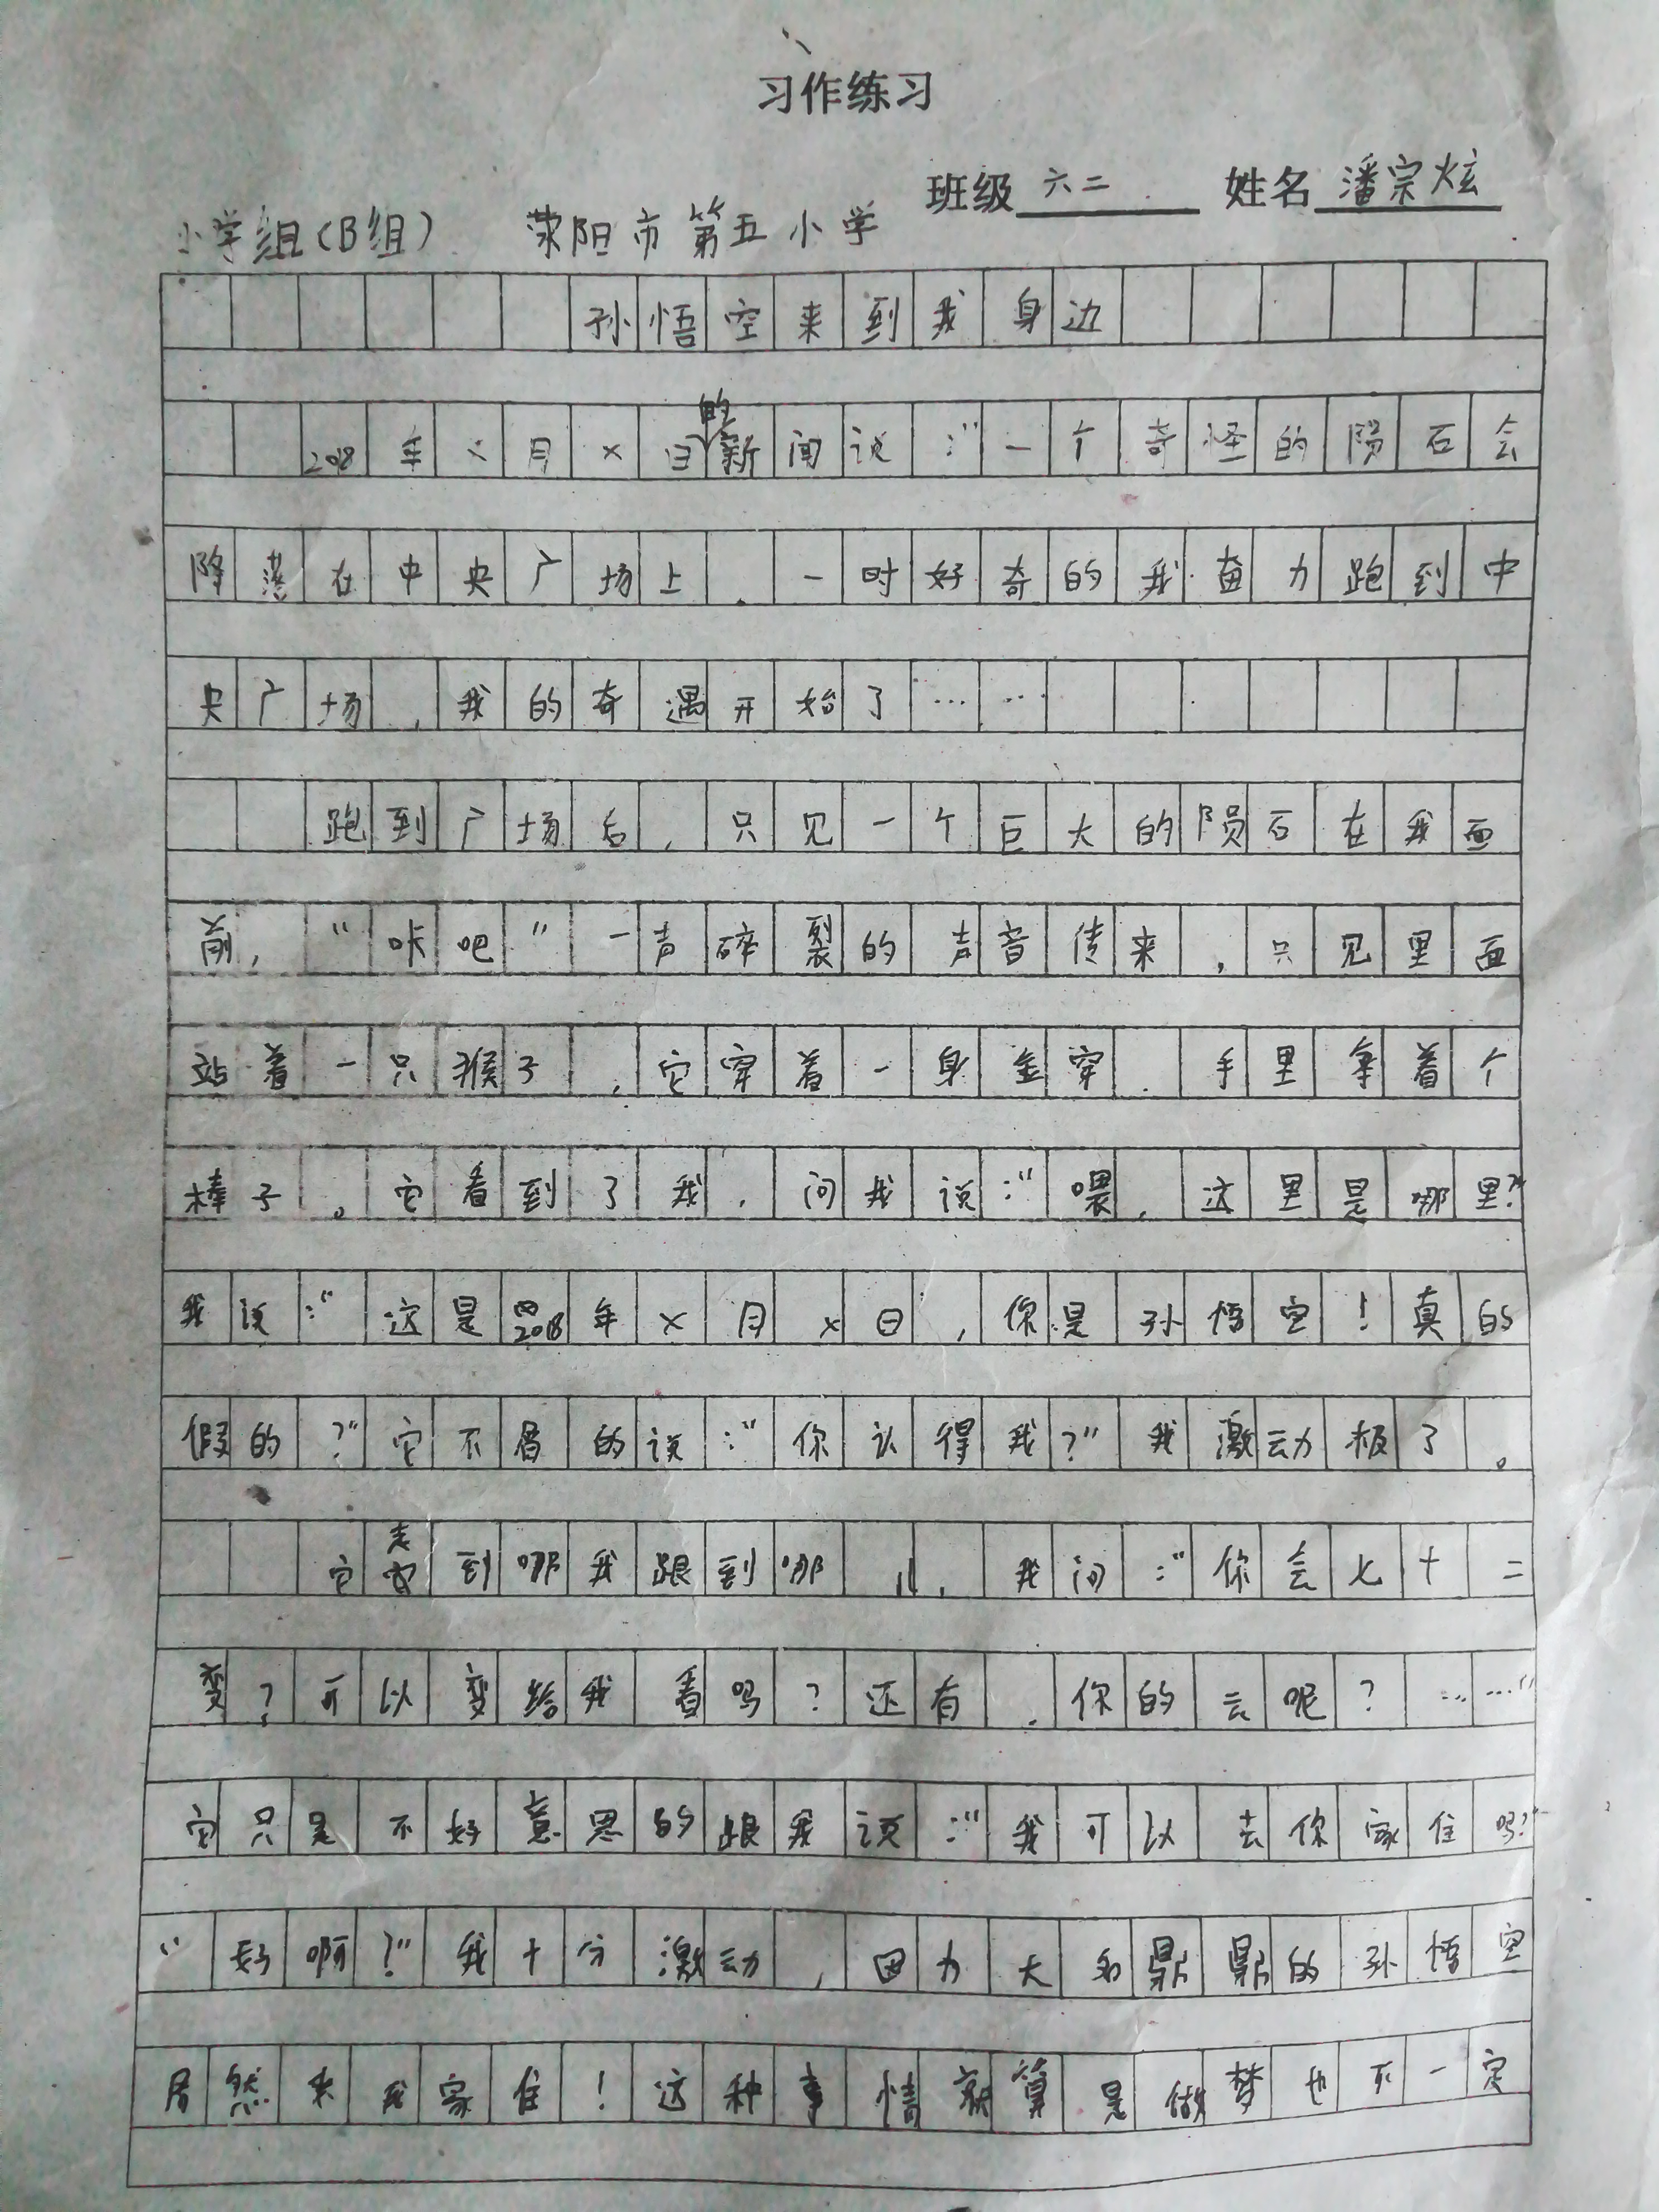 习作练习
班级 六二 姓名 潘宗炫
小学组(B组) 荥阳市第五小学
孙悟空来到我身边
2018年×月×日的新闻说:“一个奇怪的陨石会
降落在中央广场上.一时好奇的我奋力跑到中
央广场,我的奇遇开始了……
跑到广场后,只见一个巨大的陨石在我面
前,“咔吧”一声碎裂的声音传来,只见里面
站着一只猴子,它穿着一身金穿.手里拿着个
棒子。它看到了我,问我说:“喂,这里是哪里?”
我说:“这是2018年×月×日,你是孙悟空!真的
假的?”它不屑的说:“你认得我?”我激动极了。
它走到哪我跟到哪儿,我问:“你会七十二
变?可以变给我看吗?还有,你的云呢?……”
它只是不好意思的跟我说:“我可以去你家住吗?”
“好啊!”我十分激动,因为大名鼎鼎的孙悟空
居然来我家住!这种事情就算是做梦也不一定